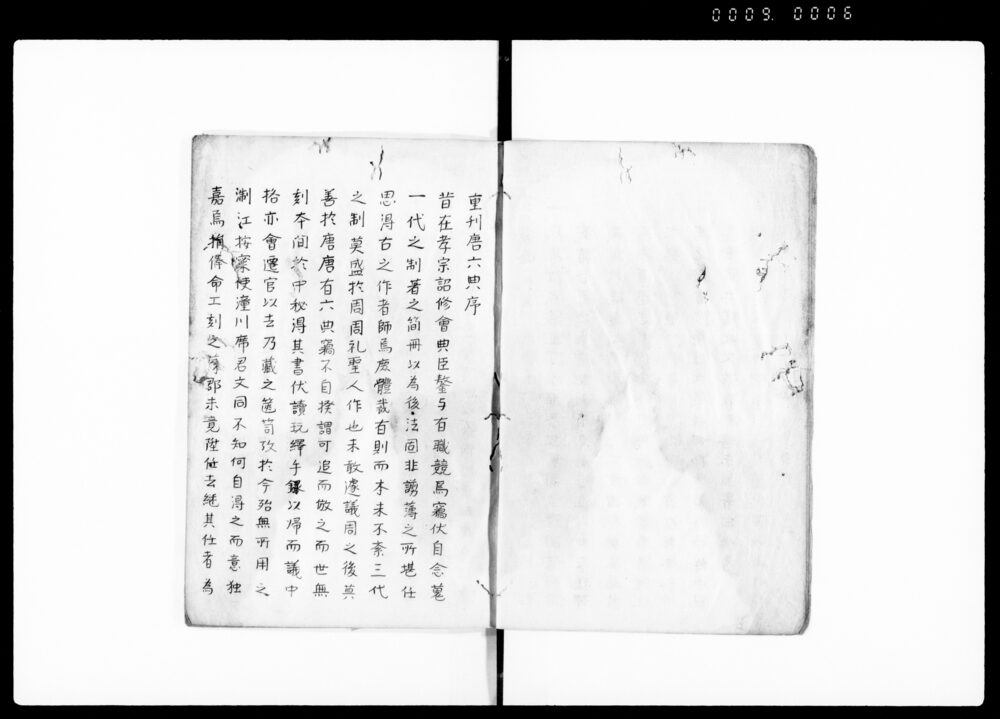 0009. 0006
重刊唐六典序
昔在孝宗詔修會典臣鏊与有職競焉竊伏自念蕞
一代之制著之簡冊以為後法固非謭薄之所堪任
思淂古之作者師焉庶體裁有則而本末不紊三代
之制莫盛於周周礼聖人作也未敢遽議周之後莫
善於唐唐有六典竊不自揆謂可追而倣之而世無
刻本間於中秘得其書伏讀玩繹手錄以帰而議中
格亦會遷官以去乃藏之篋笥攷於今殆無所用之
淛江按察使潼川席君文同不知何自淂之而意独
嘉焉捐俸命工刻之蘇郡未竟陞任去継其任者為